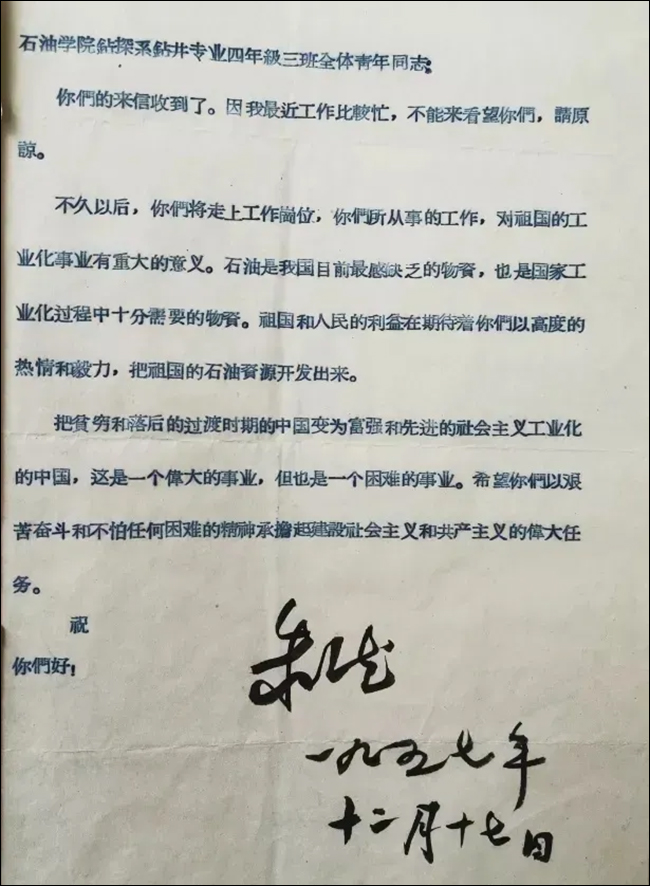 石油学院鉆探系鉆井专业四年級三班全体青年同志:
你們的来信收到了。因我最近工作比較忙，不能来看望你們，請原
諒。
不久以后，你們将走上工作崗位，你們所从事的工作，对祖国的工
业化事业有重大的意义。石油是我国目前最感缺乏的物資，也是国家工
业化过程中十分需要的物資。祖国和人民的利益在期待着你們以高度的
热情和毅力，把祖国的石油資源开发出来。
把貧穷和落后的过渡时期的中国变为富强和先进的社会主义工业化
的中国，这是一个偉大的事业，但也是一个困难的事业。希望你們以艰
苦奋斗和不怕任何困难的精神承擔起建設社会主义和共产主义的偉大任
务。
祝
你們好!
朱德
一九五七年
十二月十七日